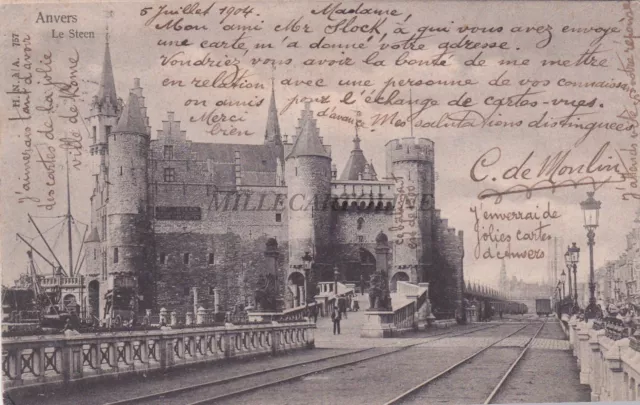 Anvers
Le Steen
H. N. à A. 757
5 Juillet 1904. Madame,
Mon ami Mr Stock, à qui vous avez envoyé
une carte, m'a donné votre adresse.
Voudriez vous avoir la bonté de me mettre
en relation avec une personne de vos connaissances
ou amis pour l'échange de cartes-vues.
Merci d'avance. Mes salutations distinguées
bien
C. de Moulin
J'enverrai de
jolies cartes
d'Anvers
J'aimerais tant d'avoir
des cartes de la jolie
ville de Rome
MILLECARTOLINE